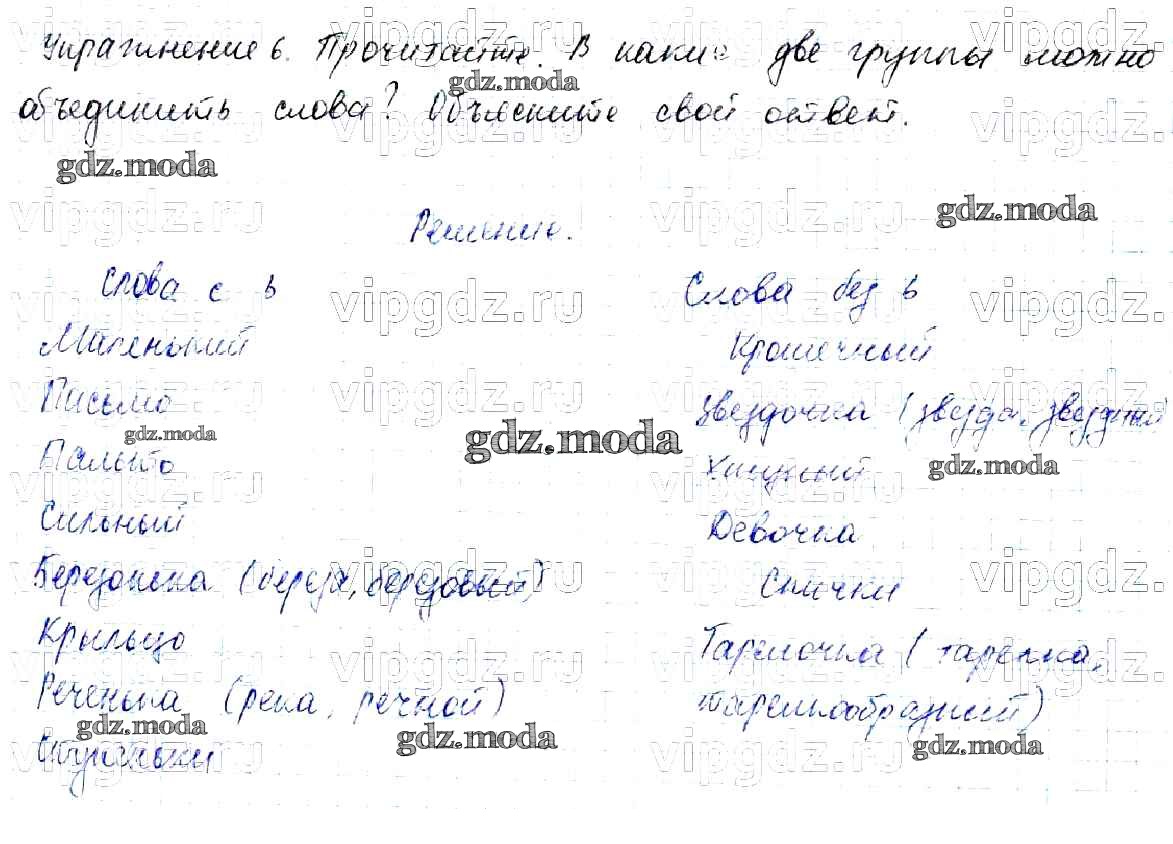 Упражнение 6. Прочитайте. В какие две группы можно
объединить слова? Объясните свой ответ.
Решение.
Слова с ь Слова без ь
Маленький Крошечный
Письмо Звездочка (звезда, звездный
Пальто Хищный
Сильный Девочка
Березонька (береза, березовый) Спички
Крыльцо Тарелочка (тарелка,
Реченька (река, речной) тарелкообразный)
vipgdz.ru
gdz.moda